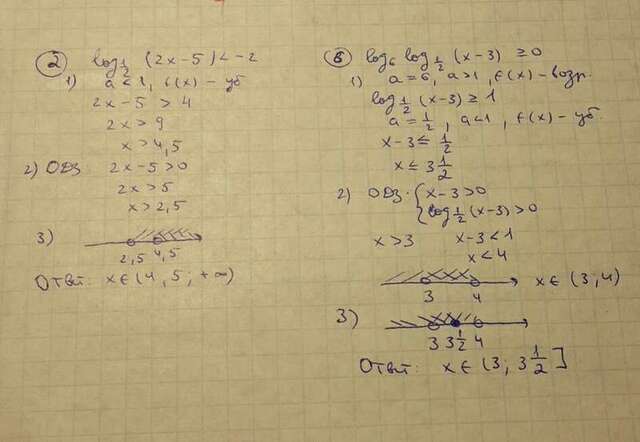 2 log 1/2 (2x-5) < -2
1) a < 1, f(x) - уб
2x - 5 > 4
2x > 9
x > 4,5
2) ОДЗ 2x-5>0
2x > 5
x > 2,5
3)
2,5 4,5
Ответ: x∈(4,5; +∞)
log6 log 1/2 (x-3) ≥ 0
1) a = 6, a>1, f(x) - возр.
log 1/2 (x-3) ≥ 1
a = 1/2, a<1, f(x) - уб.
x-3 ≤ 1/2
x ≤ 3 1/2
2) ОДЗ: { x-3>0
log 1/2 (x-3) > 0
x > 3 x-3 < 1
x < 4
3 4 x∈(3;4)
3)
3 3 1/2 4
Ответ: x∈(3; 3 1/2]